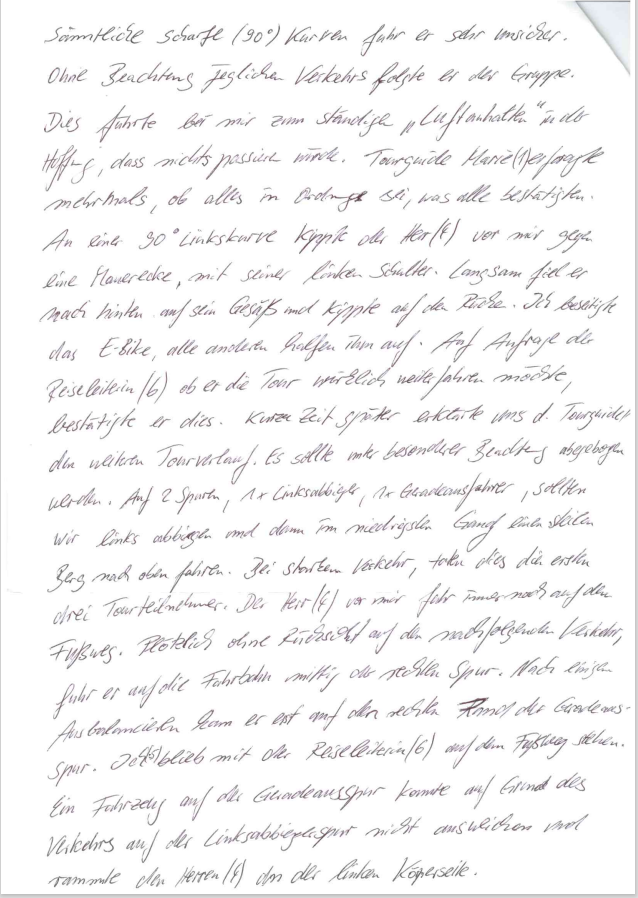 Sämmtliche scharfe (90°) Kurven fuhr er sehr unsicher.
Ohne Beachtung jeglichen Verkehrs folgte er der Gruppe.
Dies führte bei mir zum ständigen „Luftanhalten" in der
Hoffng, dass nichts passieren würde. Tourguide Marie(1) erfragte
mehrmals, ob alles in Ordnung sei, was alle bestätigten.
An einer 90° Linkskurve kippte der Herr(4) vor mir gegen
eine Mauerecke, mit seiner linken Schulter. Langsam fiel er
nach hinten auf sein Gesäß und kippte auf den Rücken. Ich
das E-Bike, alle anderen halfen ihm auf. Auf Anfrage der
Reiseleiterin(6) ob er die Tour wirklich weiterfahren möchte,
bestätigte er dies. Kurze Zeit später erklärte uns d. Tourguide
den weiteren Tourverlauf. Es sollte unter besonderer Beachtung abgebogen
werden. Auf 2 Spuren, 1x Linksabbieger, 1x Geradeausfahrer, sollten
wir links abbiegen und dann im niedrigsten Gang einen steilen
Berg nach oben fahren. Bei starkem Verkehr, taten dies die ersten
drei Tourteilnehmer. Der Herr(4) vor mir fuhr immer noch auf dem
Fußweg. Plötzlich ohne Rücksicht auf den nachfolgenden Verkehr,
fuhr er auf die Fahrbahn mittig der rechten Spur. Nach einigen
Ausbalancieren kam er erst auf den rechten Rand der Geradeaus-
spur. blieb mit der Reiseleiterin(6) auf dem Fußweg stehen.
Ein Fahrzeug auf der Geradeausspur konnte auf Grund des
Verkehrs auf der Linksabbiegerspur nicht ausweichen und
rammte den Herren(4) an der linken Köperseite.